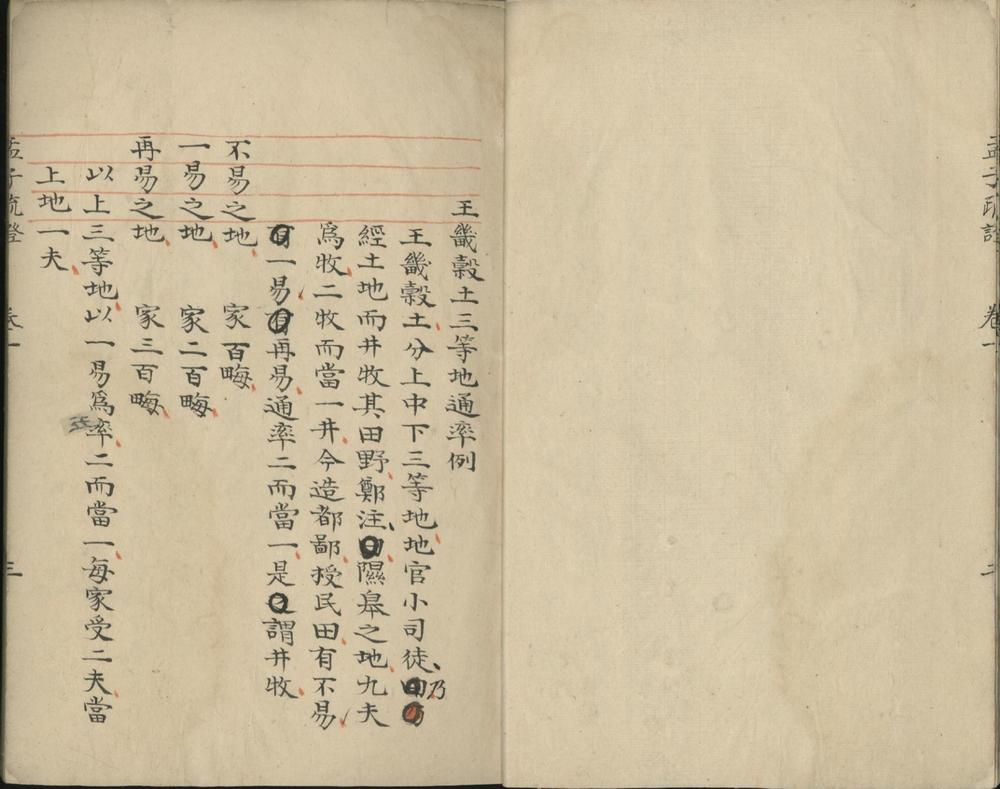 孟子疏證　卷一　二
王畿穀土三等地通率例
王畿穀土分上中下三等地地官小司徒乃
經土地而井牧其田野鄭注隰皋之地九夫
爲牧二牧而當一井今造都鄙授民田有不易
一易再易通率二而當一是謂井牧
不易之地　家百畮
一易之地　家二百畮
再易之地　家三百畮
以上三等地以一易爲率二而當一每家受二夫當
上地一夫
孟子疏證　卷一　三